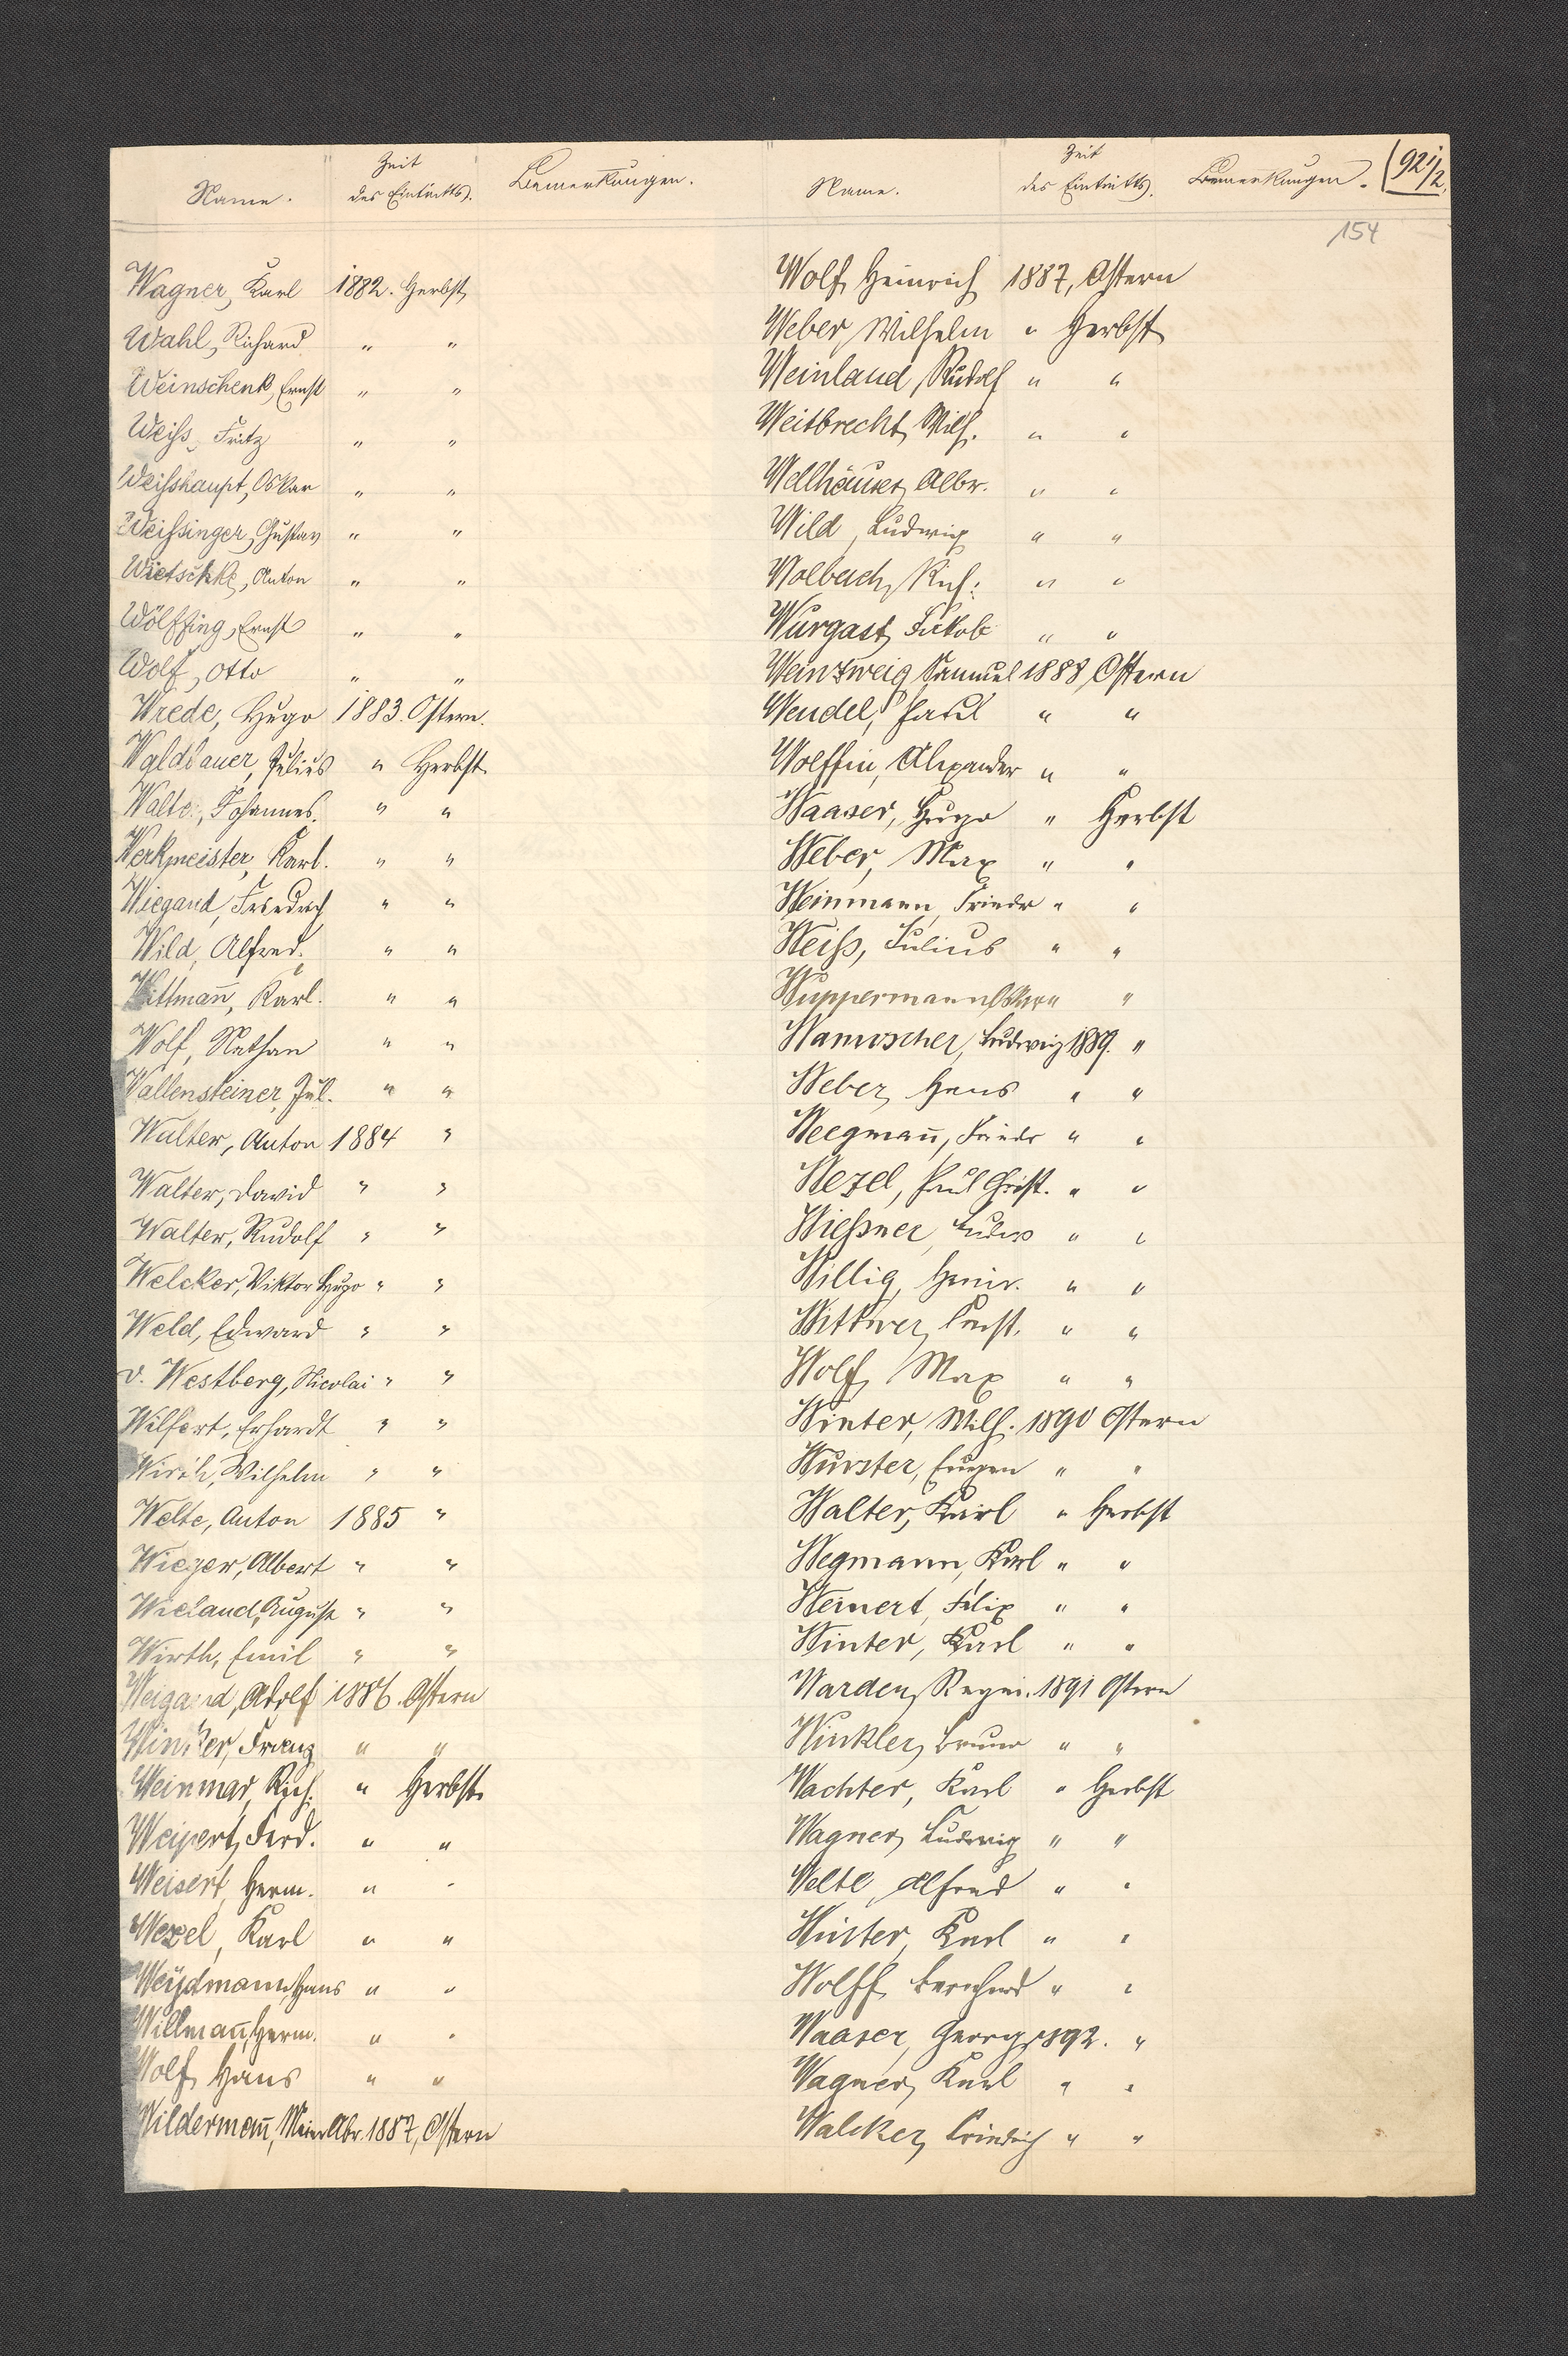 Name. Zeit des Eintritts. Bemerkungen. Name. Zeit des Eintritts. Bemerkungen. 92 1/2.
154
Wagner, Karl 1882. Herbst
Wahl, Richard " "
Weinschenk, Ernst " "
Weiss, Fritz " "
Weisshaupt, Oskar " "
Weissinger, Gustav " "
Wietschke, Anton " "
Wölffing, Ernst " "
Wolf, Otto " "
Wrede, Hugo 1883. Ostern.
Waldbauer, Julius " Herbst.
Johannes. " "
Werkmeister, Karl. " "
Wiegand, Friedrich " "
Wild, Alfred. " "
Wittmañ, Karl. " "
Wolf, Nathan " "
Wallensteiner, Jul. " "
Walter, Anton 1884 "
Walter, David " "
Walter, Rudolf " "
Welcker, Viktor Hugo " "
Weld, Edward " "
v. Westberg, Nicolai " "
Wilfert, Erhardt " "
Wirth, Wilhelm " "
Welte, Anton 1885 "
Wieger, Albert " "
Wieland, August " "
Wirth, Emil " "
Weigand, Adolf 1886. Ostern
Winker, Franz " "
Weinmar, Rich. " Herbst.
Weipert, Ferd. " "
Weisert, Herm. " "
Wezel, Karl " "
Weydmann, Hans " "
Willmañ, Herm. " "
Wolf, Hans " "
Wildermañ, Meier Abr. 1887, Ostern
Wolf, Heinrich 1887, Ostern
Weber, Wilhelm " Herbst
Weinland, Rudolf " "
Weitbrecht, Wilh. " "
Wellhäuser, Albr. " "
Wild, Ludwig " "
Wolbach, Rich. " "
Wurgast, Jakob " "
Weinzweig, Samuel 1888, Ostern
Wendel, Paul " "
Wolffin, Alexander " "
Waaser, Hugo " Herbst
Weber, Max " "
Weinmann, Friedr " "
Weiß, Julius " "
Wuppermann, Oskar " "
Ludwig 1889. "
Weber, Hans " "
Weegmañ, Friedr " "
Wezel, Paul Christ. " "
Wießner, " "
Willig, Heinr. " "
Wittwer, Ernst. " "
Wolf, Max " "
Winter, Wilh. 1890 Ostern
Wurster, Eugen " "
Walter, Karl " Herbst
Wegmann, Karl " "
Weinert, Felix " "
Winter, Karl " "
Warden, 1891 Ostern
Winkler, Bruno " "
Wachter, Karl " Herbst
Wagner, Ludwig " "
Welte, Alfred " "
Karl " "
Wolff, Bernhard " "
Waaser, Georg 1892. "
Wagner, Karl " "
Walcker, Friedrich " "